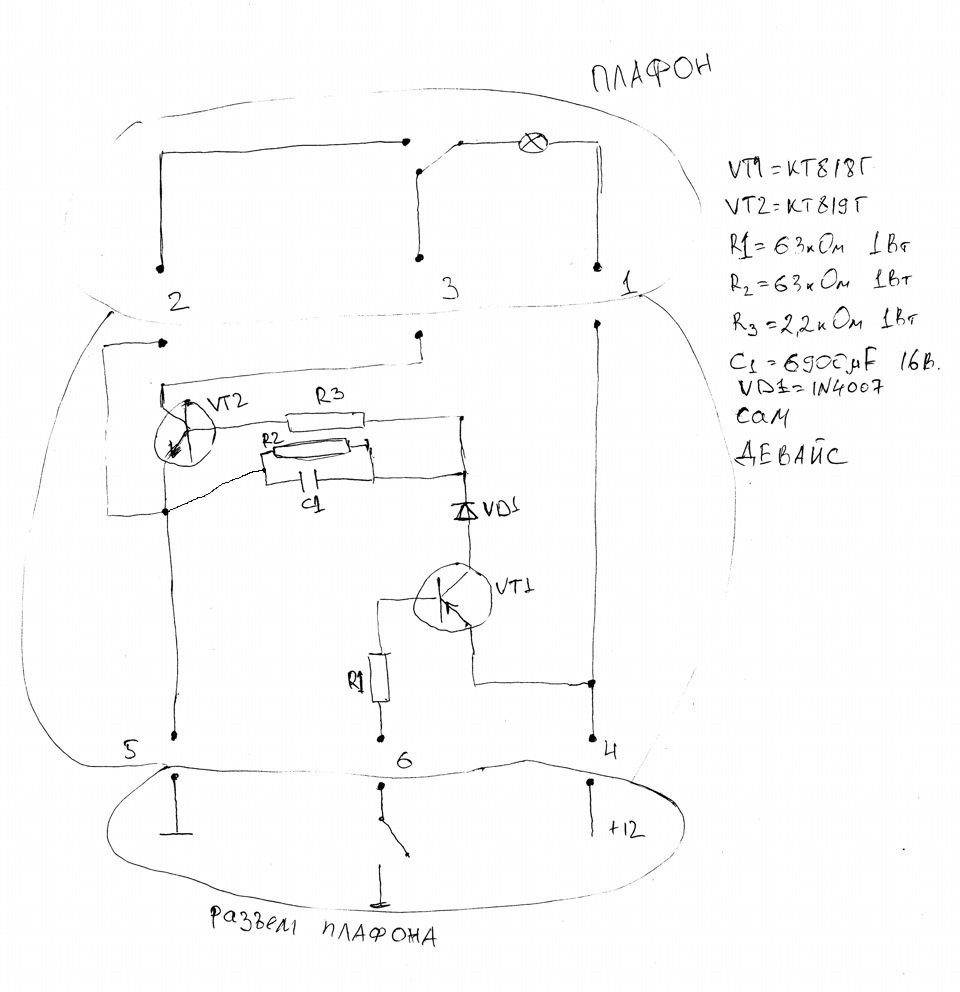 ПЛАФОН
VT1=КТ818Г
VT2=КТ819Г
R1=63кОм 1Вт
R2=63кОм 1Вт
R3=2,2кОм 1Вт
C1=6900μF 16В.
VD1=1N4007
САМ
ДЕВАЙС
2 3 1
VT2 R3
R2
C1
VD1
VT1
R1
5 6 4
+12
РАЗЪЕМ ПЛАФОНА